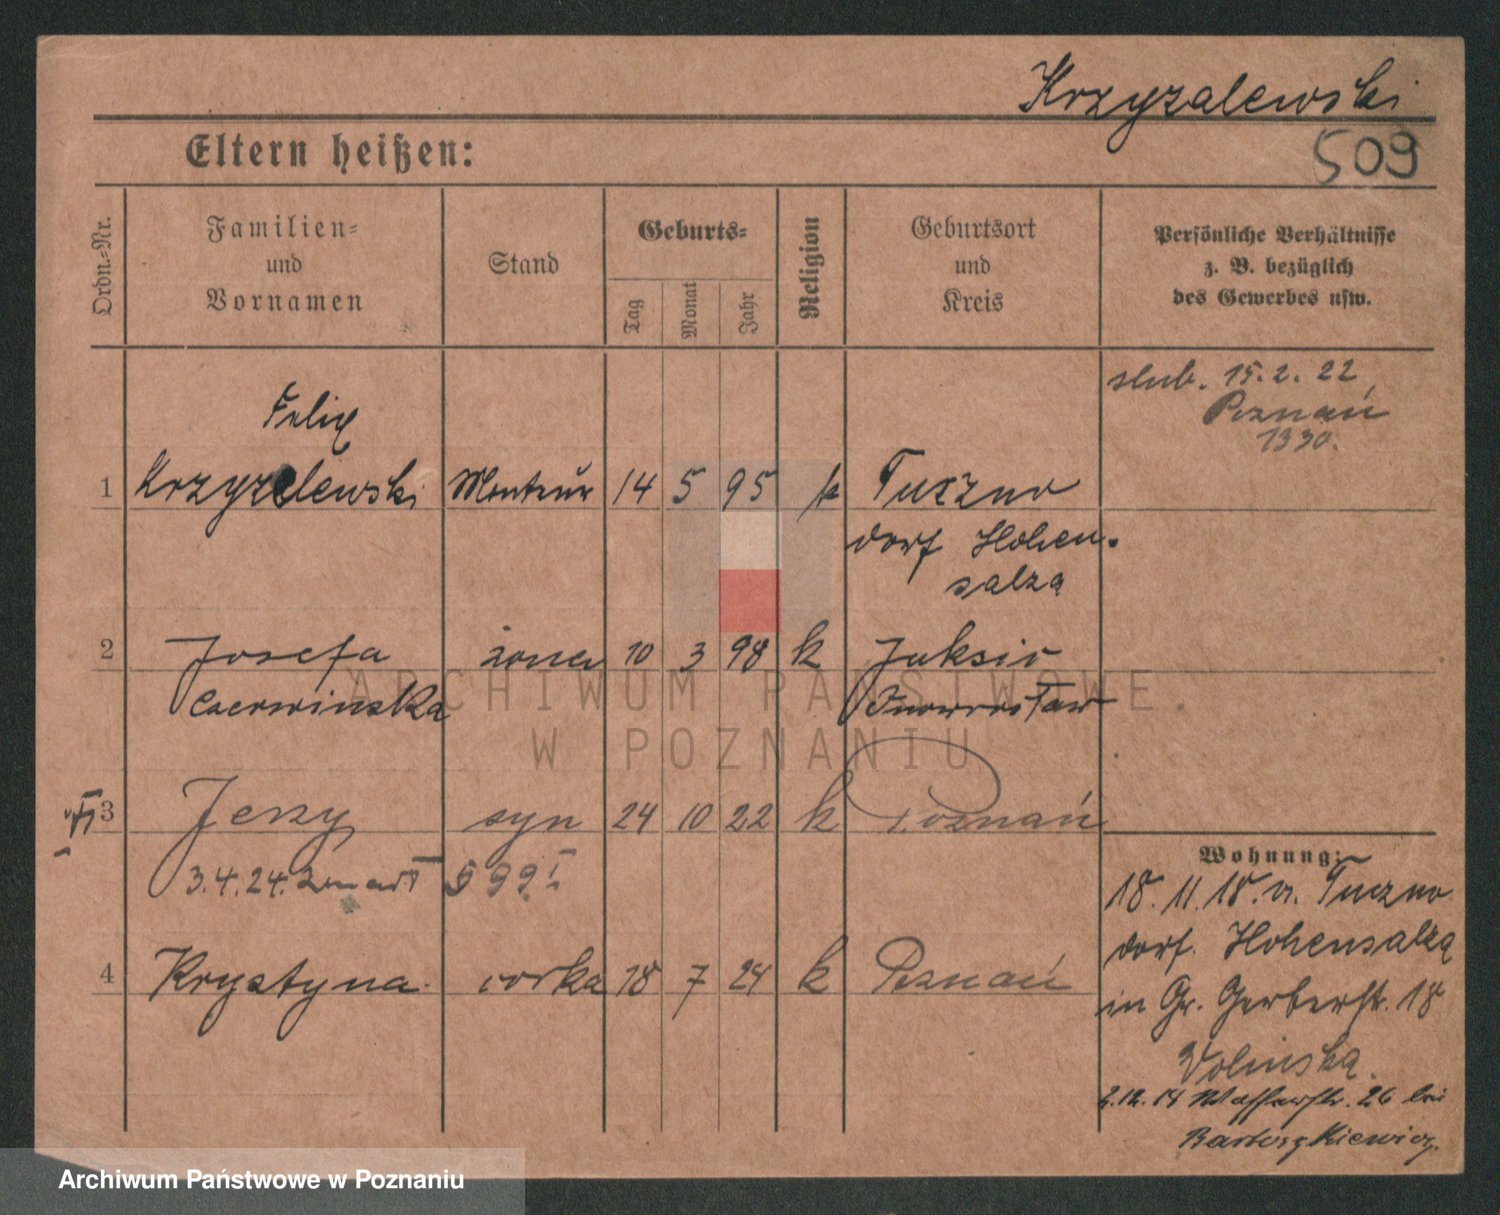 Krzyzalewski
509
Eltern heißen:
Ordn.-Nr.
Familien-
und
Vornamen
Stand
Geburts-
Tag
Monat
Jahr
Religion
Geburtsort
und
Kreis
Persönliche Verhältnisse
z. B. bezüglich
des Gewerbes usw.
slub. 15.2.22
Poznań
1330.
Felix
1 Krzyzelewski Monteur 14 5 95 k Tuczno
dorf Hohen-
salza
2 Josefa żona 10 3 98 k Juksio
Czerwinska Inowrocław
3 Jerzy syn 24 10 22 k Poznań
3.4.24. zmarł 599 I
4 Krystyna. corka 18 7 24 k Poznań
Wohnung:
18.11.18. v. Tuczno
dorf. Hohensalza
in Gr. Gerberstr. 18
Wolinska.
2.12.18 Wasserstr. 26 bei
Bartoszkiewicz.
ARCHIWUM PAŃSTWOWE
W POZNANIU
Archiwum Państwowe w Poznaniu